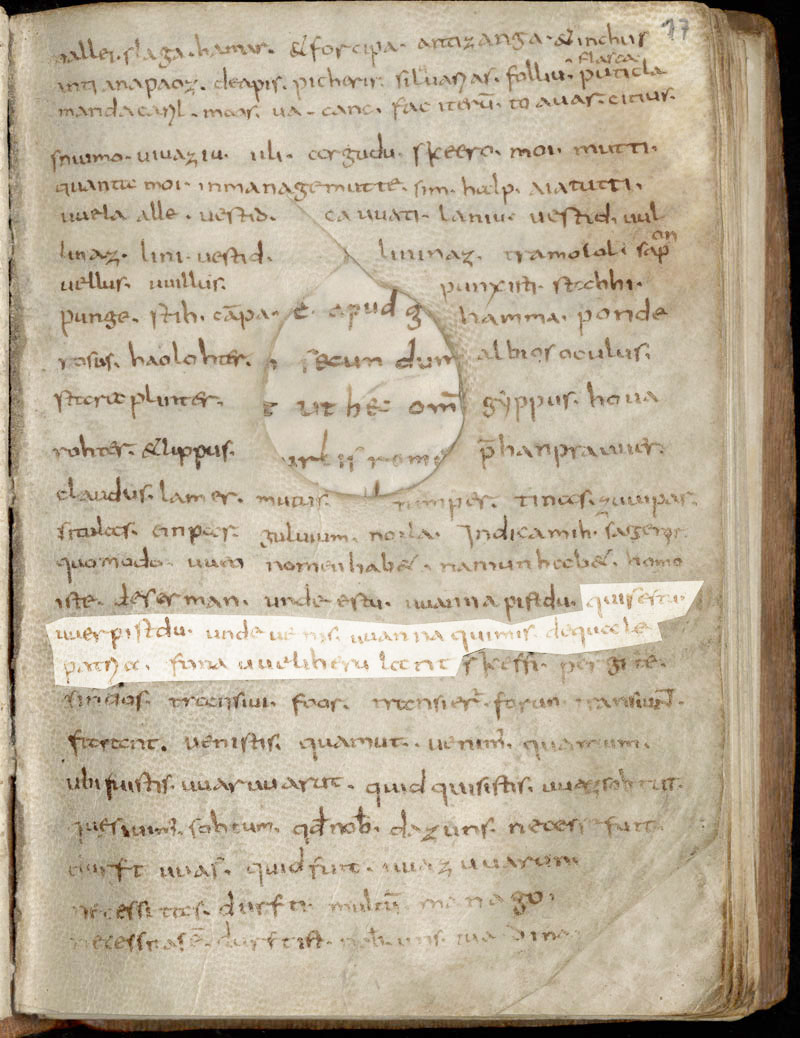 17
mallei. slaga. hamar. & forcipa. antizanga. & inchus
flasca
anti anapaoz. deapis. picherir. siluarias. folliu. puticla
manda caril. moos. ua. canc. fac iterū. to auar. citius.
sniumo. uuaziu. illi. cergudu. skeero. moi. mutti.
quante moi. in managemutte. sim. halp. aiatutti.
uuela alle. uestid. ca uuati. laniu. uestid. uul
linaz. lini. uestid. lininaz. tramolol. sap
an
uellus. uuillus. punxisti. stechhi.
punge. stih. cāpa. c. apud g hamma. ponde
rosus. haolohter. secundum albios oculus.
staraeplinter. t ut hec om̄ gyppus. houa
rohter. & lippus. urbis rome p̄hanprauuer.
claudus. lamer. mutus. nimper. tinaes. zuuipar.
situlaes. einpaer. guluium. noila. Indica mih. sagemir
quomodo. uuem nomen habet. namun habet. homo
iste. deser man. unde estu. uuanna pistdu. quisestu.
uuer pist du. unde uenis. uuanna quimis. dequale
patria. fona uueliheru lant skeffi. pergite.
sindos. transiui. foor. transierunt. forun. transiunt.
farent. uenistis. quamut. uenimus. quamum.
ubi fuistis. uuar uuarut. quid quisistis. uuaz sohtut
quesiuimus. sohtum. qđ nob. daz uns. necesse fuit.
durft uuas. quid fuit. uuaz uuarun
necessitas. durfti. multū. manago.
necessitas ē. durft ist. nob. uns. tua dina